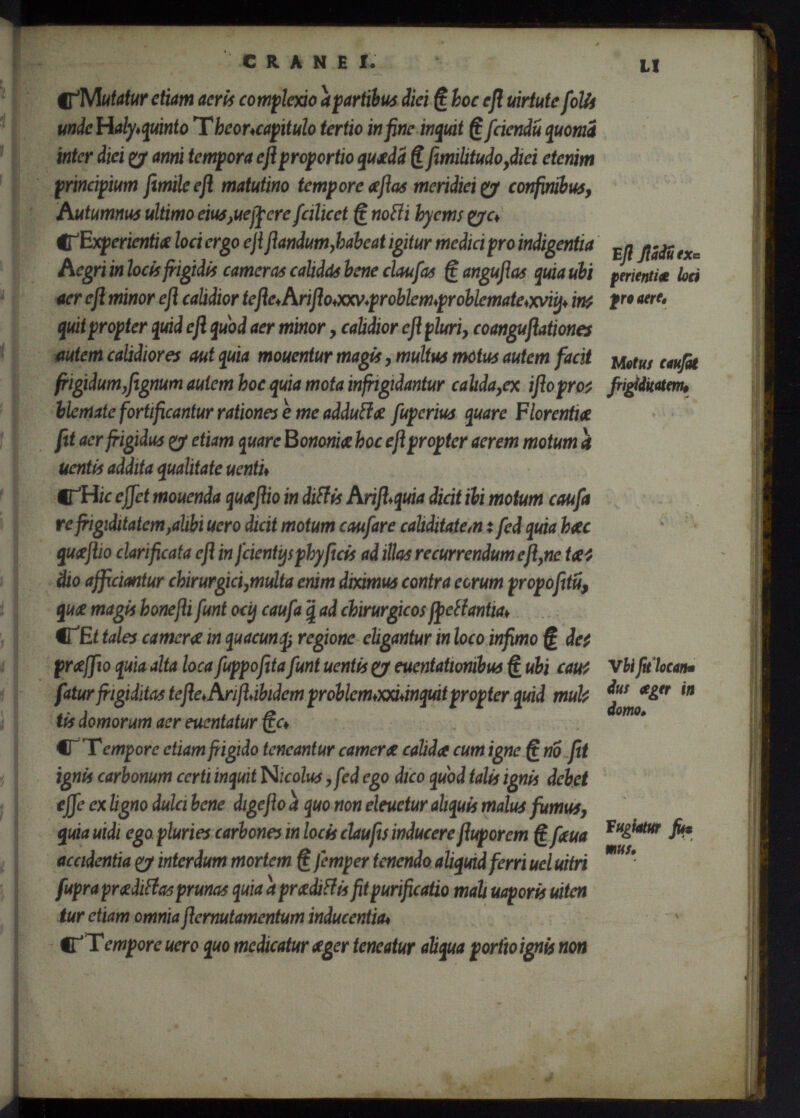 CRANEI.
LI
❡Mutatur etiam aeris complexio à partibus diei & hoc est uirtute solis
unde Haly.quinto Theor.capitulo tertio in fine inquit & sciendū quoniā
inter diei & anni tempora est proportio quædā & similitudo,diei etenim
principium simile est matutino tempore æstas meridiei & confinibus,
Autumnus ultimo eius,uespere scilicet & nocti hyems &c.
❡Experientiæ loci ergo est standum,habeat igitur medici pro indigentia
Aegri in locis frigidis cameras calidas bene clausas & angustas quia ubi
aer est minor est calidior teste.Aristo.xxv.problem.problemate.xviij. in=
quit propter quid est quòd aer minor, calidior est pluri, coangustationes
autem calidiores aut quia mouentur magis, multus motus autem facit
frigidum,signum autem hoc quia mota infrigidantur calida,ex isto pro=
blemate fortificantur rationes è me adductæ superius quare Florentiæ
sit aer frigidus & etiam quare Bononiæ hoc est propter aerem motum à
uentis addita qualitate uenti.
❡Hic esset mouenda quæstio in dictis Arist.quia dicit ibi motum causa
re frigiditatem,alibi uero dicit motum causare caliditatem: sed quia hæc
quæstio clarificata est in scientijs physicis ad illas recurrendum est,ne tæ=
dio afficiantur chirurgici,multa enim diximus contra eorum propositū,
quæ magis honesti sunt ocij causa q̃ ad chirurgicos spectantia.
❡Et tales cameræ in quacunq; regione eligantur in loco infimo & de=
præsso quia alta loca supposita sunt uentis & euentationibus & ubi cau=
satur frigiditas teste.Arist.ibidem problem.xxi.inquit propter quid mul=
tis domorum aer euentatur &c.
❡Tempore etiam frigido teneantur cameræ calidæ cum igne & nō sit
ignis carbonum certi inquit Nicolus, sed ego dico quòd talis ignis debet
esse ex ligno dulci bene digesto à quo non eleuetur aliquis malus fumus,
quia uidi ego pluries carbones in locis clausis inducere stuporem & sæua
accidentia & interdum mortem & semper tenendo aliquid ferri uel uitri
supra prædictas prunas quia à prædictis fit purificatio mali uaporis uiten
tur etiam omnia sternutamentum inducentia.
❡Tempore uero quo medicatur æger teneatur aliqua portio ignis non
Est stādū ex=
perientiæ loci
pro aere.
Motus causat
frigiditatem.
Vbi sit locan=
dus æger in
domo.
Fugiatur fu=
mus.